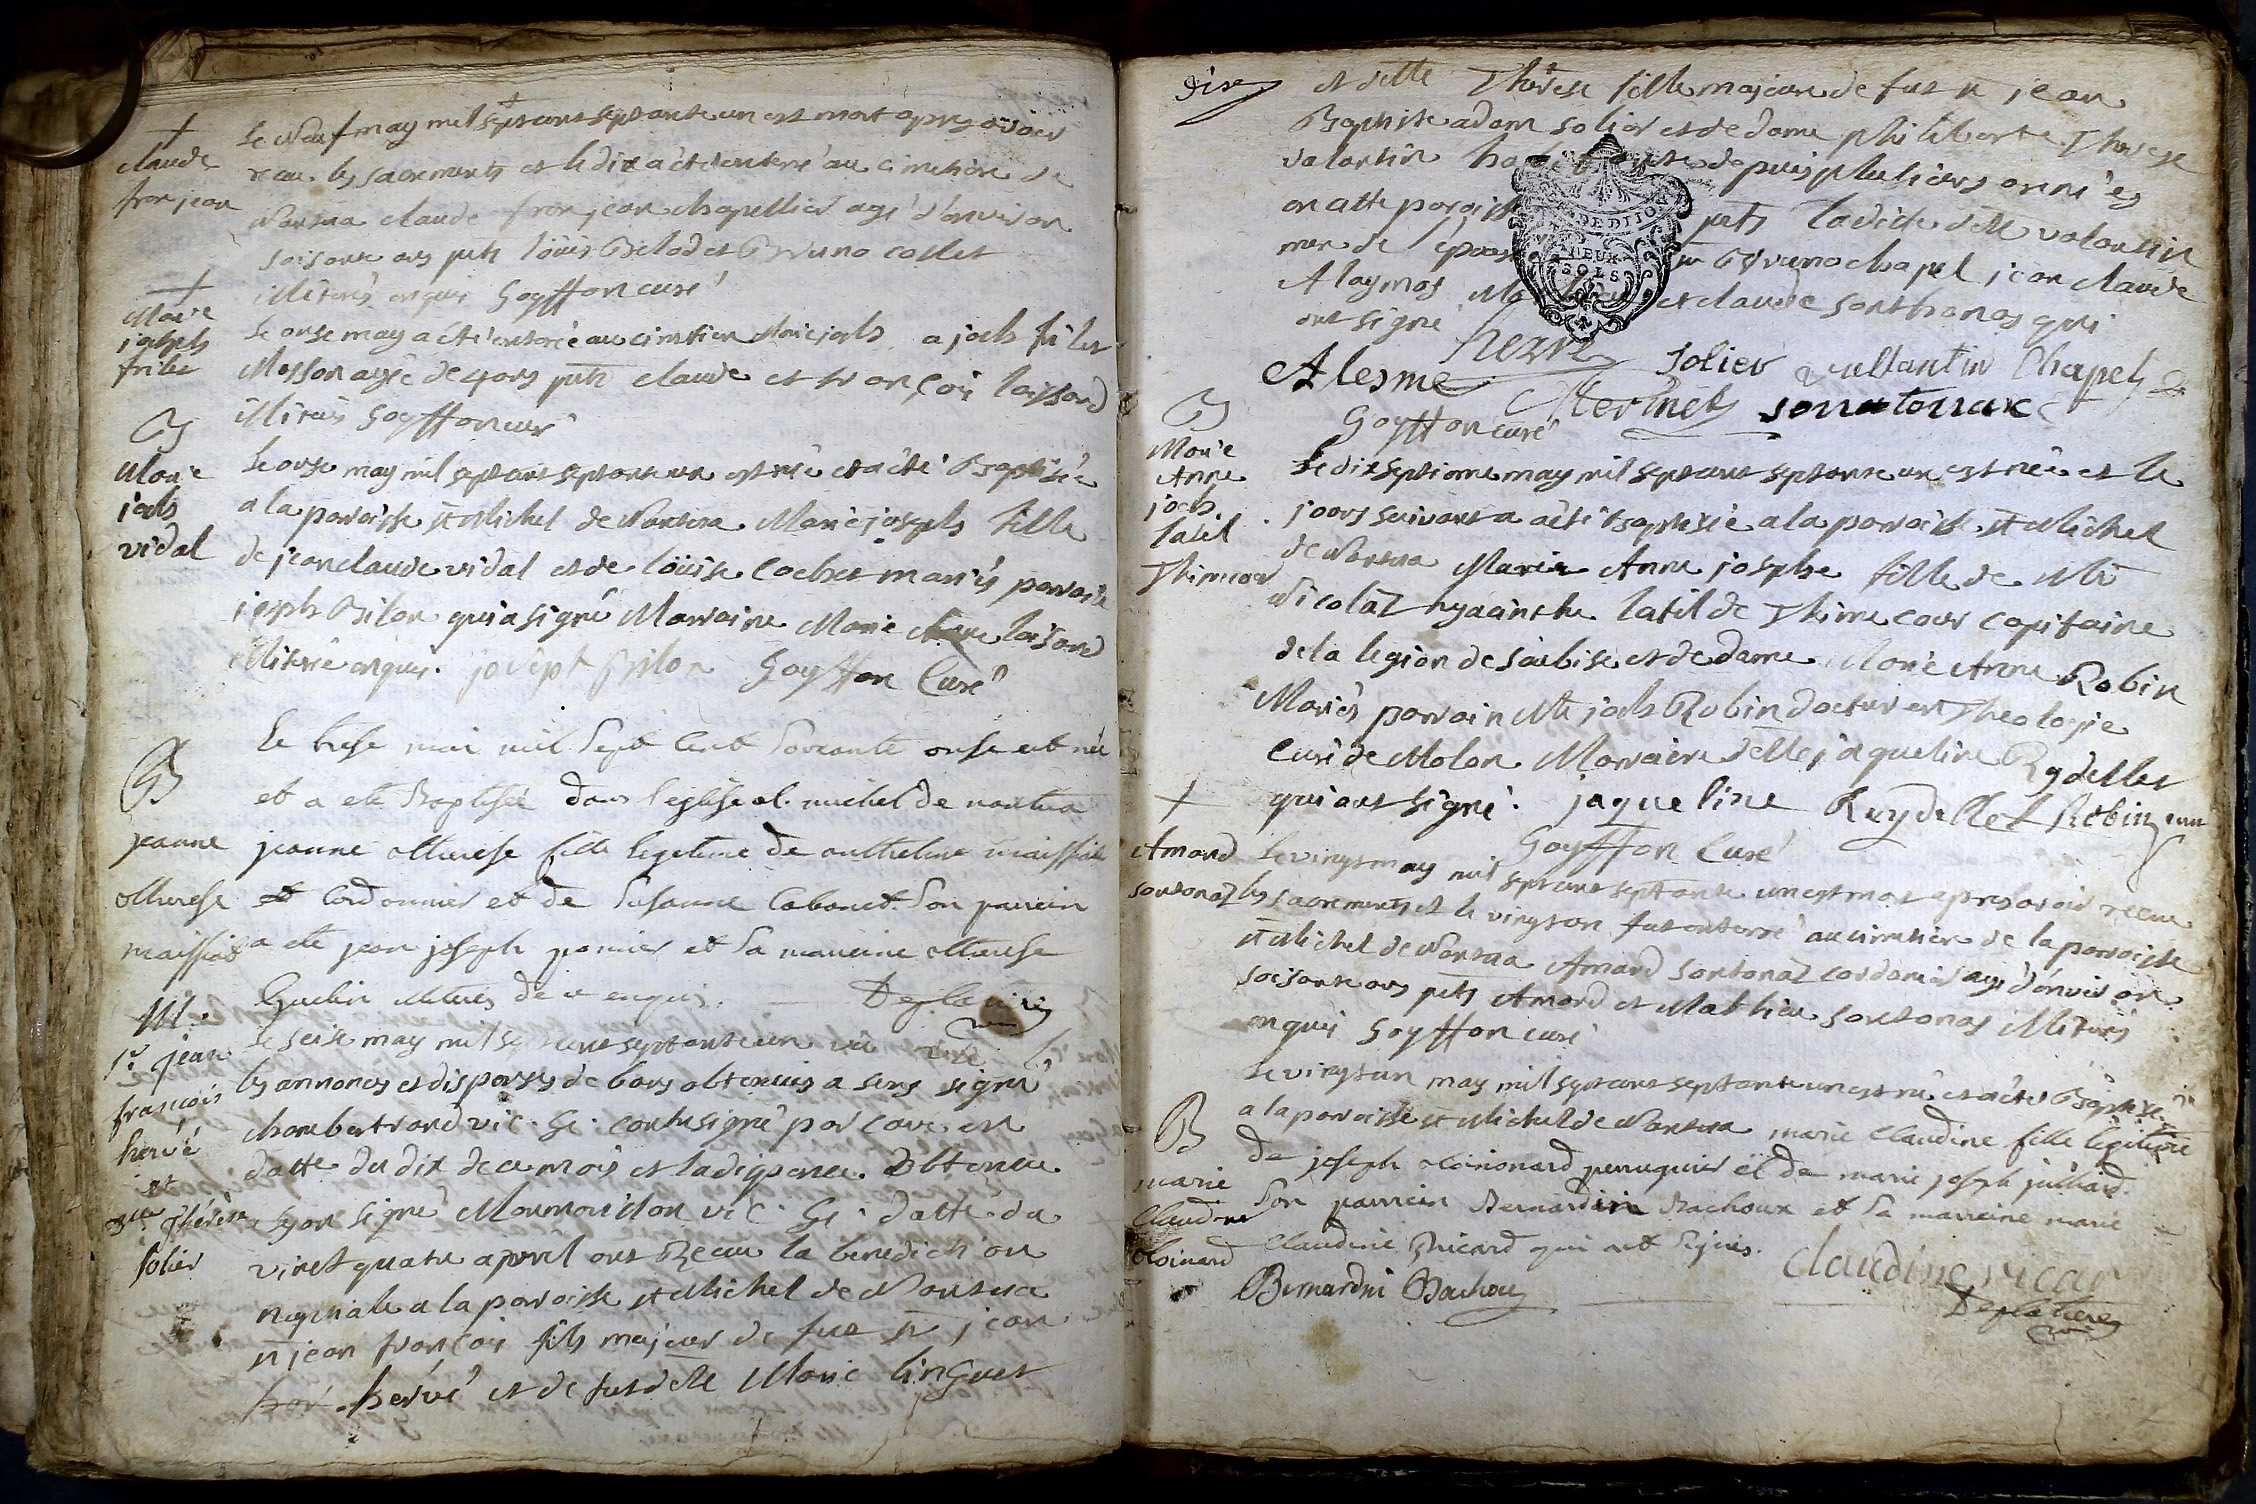 +
claude
franjean
Le neuf may mil sept cent septante un est mort apres avoir
recu les sacrements et le dix a été enterré au cimetiere de
Nantua claude franjean chapellier agé d'environ
soisante ans pnts loüis Belod et Bruno collet
illiterés enquis Goyffon curé
+
Marie
joseph
frilet
Le onse may a été enterrée au cimetiere Marie josh a josh frilet
Masson agée de 4 ans pnts claude et françois
illiterés Goyffon curé
B
Marie
josh
vidal
Le onse may mil sept cent septante un est née et a été Baptisée
a la paroisse st Michel de Nantua Marie joseph fille
de jean claude vidal et de loüise Cochet mariés parrain
joseph Bilon qui a signé Marraine Marie
illiterée enquis. josept Bilon Goyffon Curé
B
jeanne
therese
maissiat
Le trese mai mil sept cent soixante onse est née
et a eté Baptisée dans l'eglise st. michel de nantua
jeanne therese fille legitime de anthelme maissiat
cordonnier et de susanne Cabanet. son parrein
a eté jean joseph ponier et sa marreine therese
Gudin illiterés de ce enquis. Deplatiere
M.
sr jean
françois
hervé
et
dlle thérèse
solier
Le seise may mil sept cent septante un vû
les annonces et dispenses de bans obtenues a sens signé
chambertrand vic. G. contresigné par
datte du dix de ce mois et la dispense obtenue
a lyon signé Monmorillon vic. G. datte du
vinct quatre apvril ont Recu la benediction
nuptiale a la paroisse st Michel de Nantua
sr jean françois fils majeur de fut sr jean
hervé et de fut delle Marie linguet
Dix
et delle Therese fille majeure de fut sr jean
Baptiste adam solier et de dame philiberte Therese
valantin depuis plusieurs années
en cette paroisse pnts ladite delle valantin
mere de Bruno chapel jean claude
et claude sonthonas qui
ont signé
Alesme hervé solier vallantin Chapel
Goyffon curé sonntonnax
B
Marie
Anne
josh.
latil
Thimecour
Le dix septieme may mil sept cent septante un est née et le
jours suivant a été Baptisée a la paroisse st Michel
de Nantua Marie Anne josephe fille de Mr
Nicolaz hyacinthe latil de Thimecour capitaine
de la legion de soubise et de dame Marie Anne Robin
Mariés parrain Mre josh Robin docteur en Theologie
Curé de Molon Marraine delle jaqueline Rydellet
qui ont signé. jaqueline Reydellet Robin curé
Goyffon Curé
+
Amard
sontonaz
Le vingt may mil sept cent septante un est mort apres avoir recu
les sacrements et le vingt un fut enterré au cimetiere de la paroisse
st Michel de Nantua Amard sontonaz cordonier agé d'environ
soisante ans pnts Amard et Mathieu sontonas illiterés
enquis Goyffon curé
B
marie
Claudine
Loinard
Le vingt un may mil sept cent septante un est née et a été Baptisée
a la paroisse st Michel de Nantua marie Claudine fille legitime
de joseph perruquier et de marie joseph juillard.
son parrein Bernardin Bachoux et sa marreine marie
Claudine Ricard qui ont signés.
Bernardin Bachoux Claudine ricar
Deplatiere